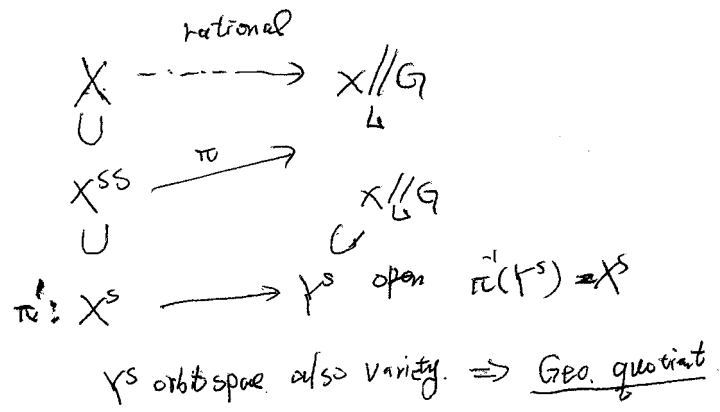 rational
X ---→ X//G
∪ L
X^SS π→ X//G
L
∪ ∪
π': X^S → Y^S open π^{-1}(Y^S) = X^S
Y^S orbit space also variety. ⇒ Geo. quotient